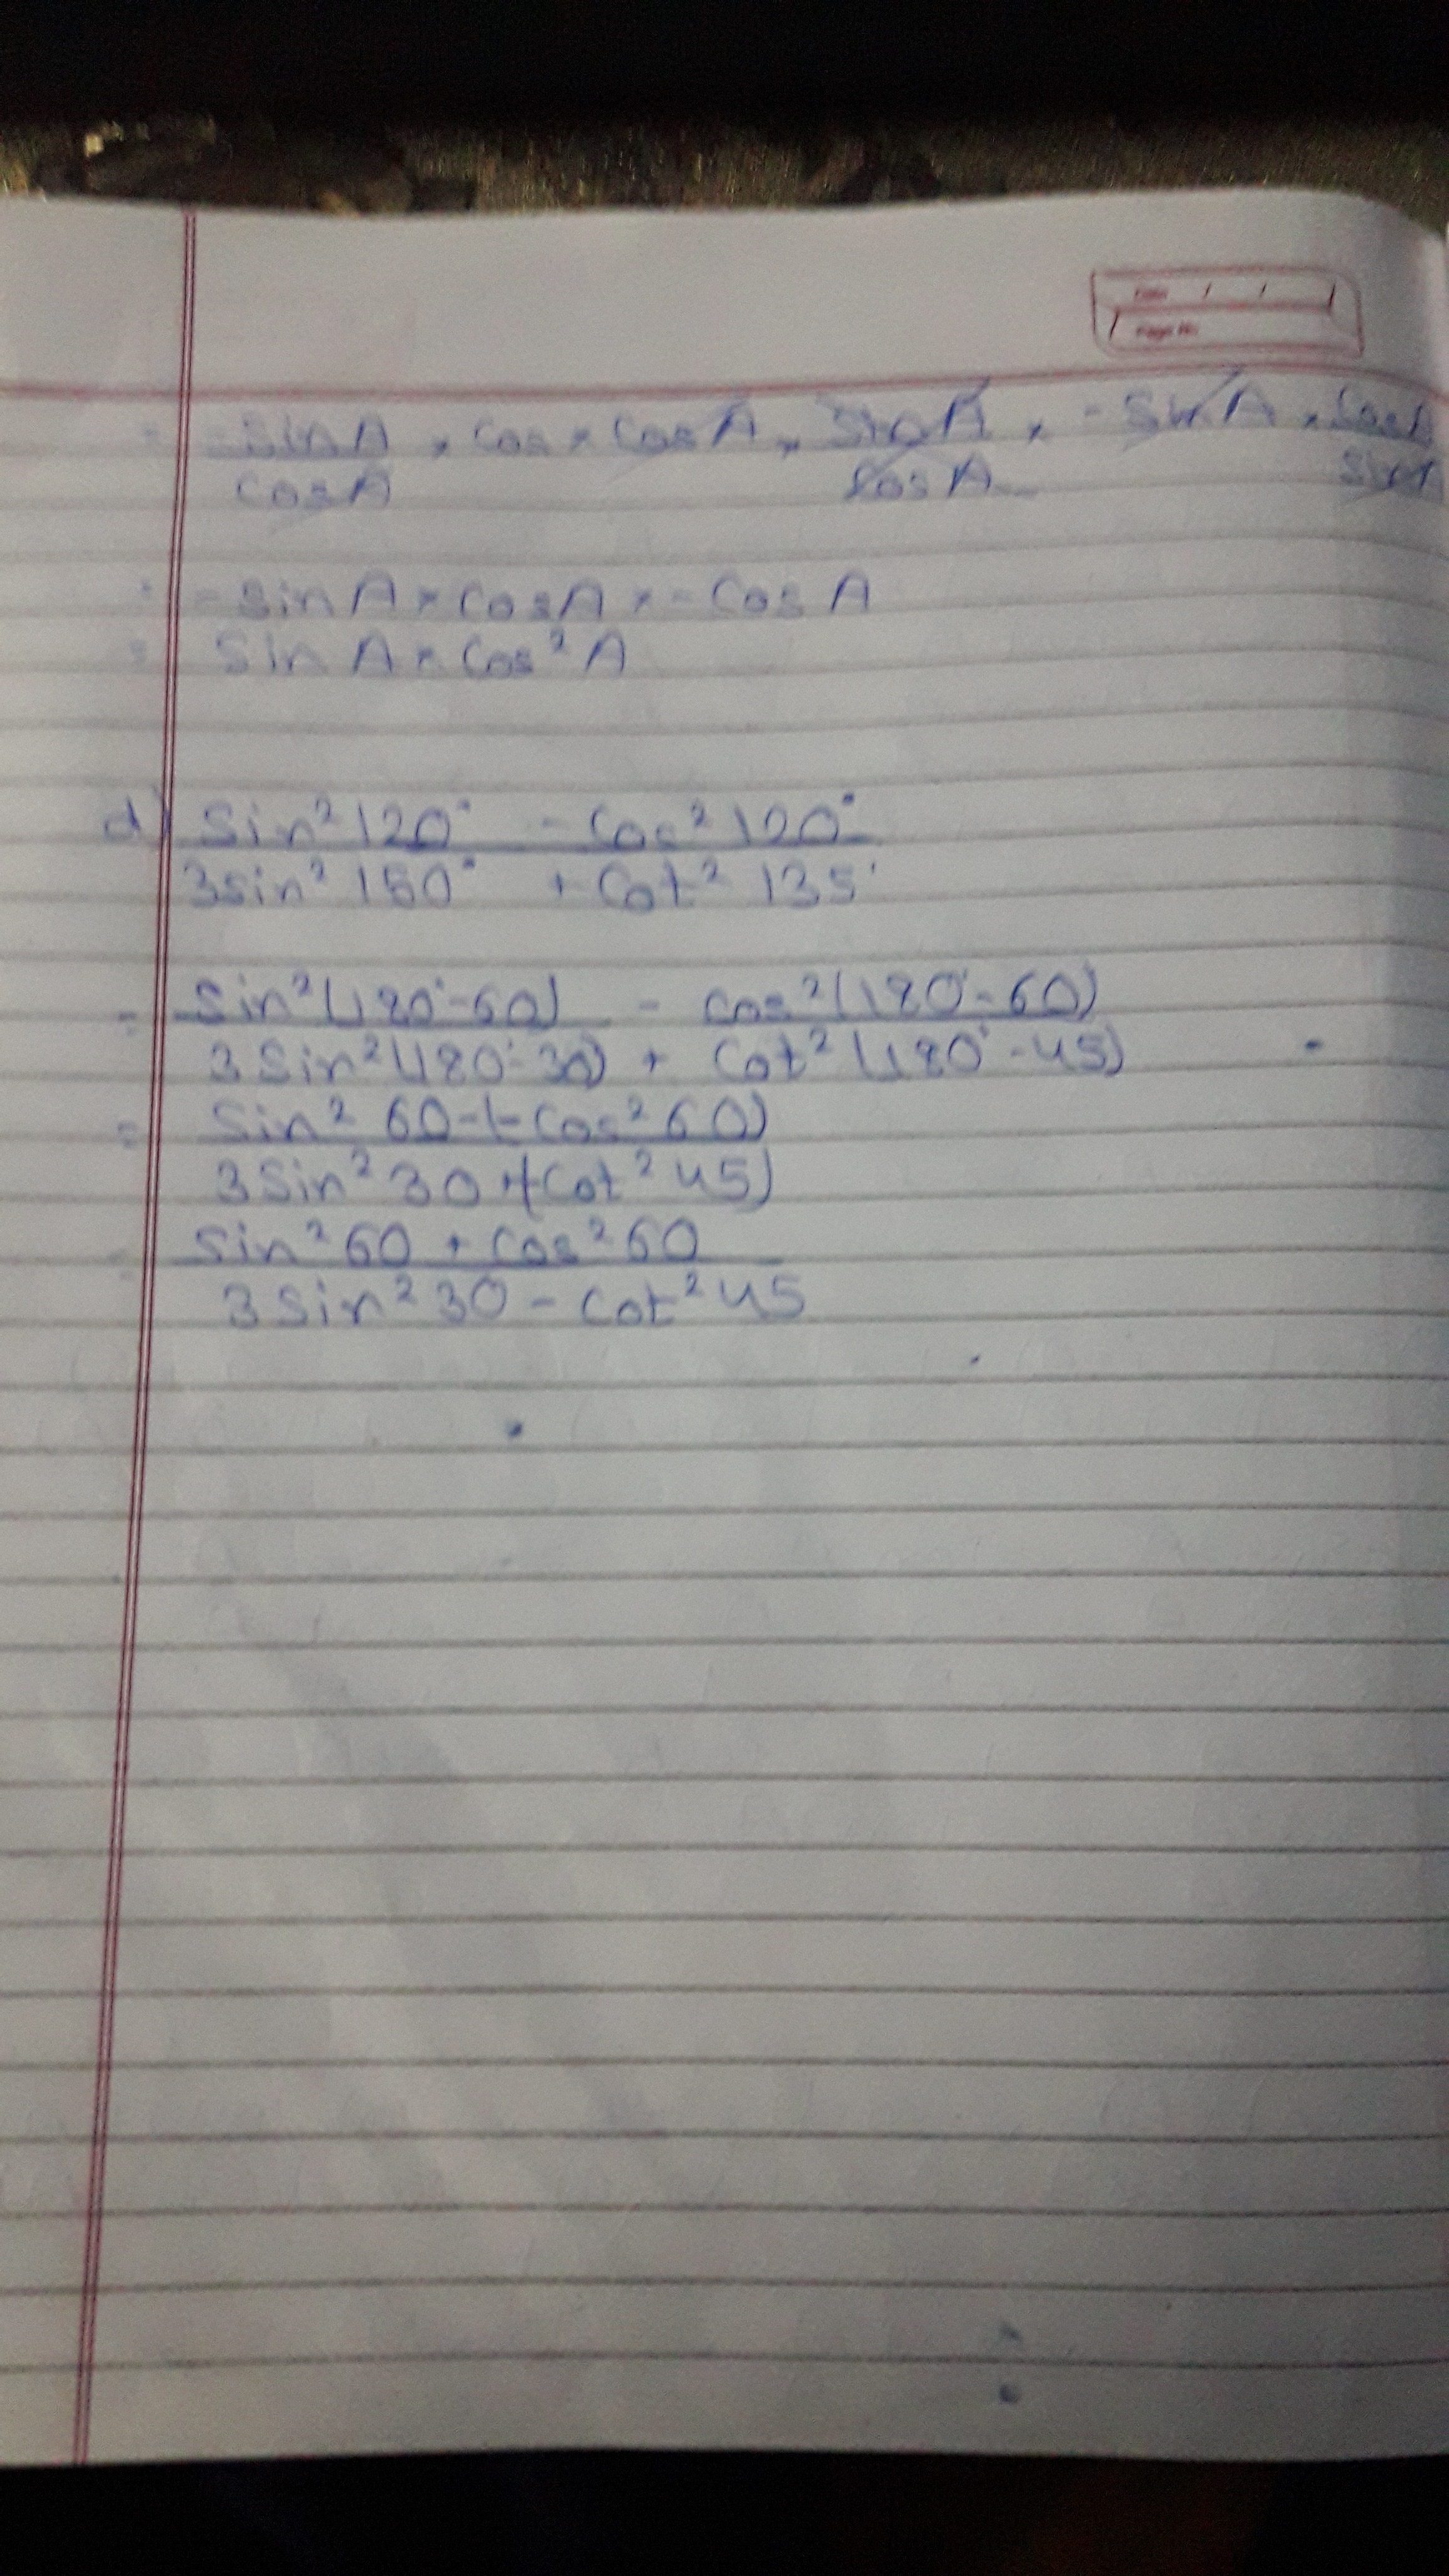 Date / /
Page No.
= -sinA/cosA × cos × cosA × sinA/cosA × -sinA × cosA/sinA
= -sinA × cosA × -cosA
= sinA × cos²A
d) sin²120° - cos²120°
3sin²150° + cot²135°
= sin²(180°-60) - cos²(180°-60)
3sin²(180°-30) + cot²(180°-45)
= sin²60-(-cos²60)
3sin²30+(cot²45)
= sin²60 + cos²60
3sin²30 - cot²45